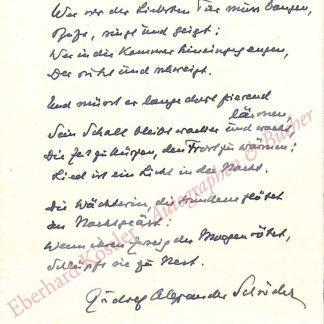 Wer vor der Liebsten Tür muss bangen,
singt und geigt:
Wer in die Kammer hineingegangen,
Der ruht und schweigt.
Und müsst er lange dort frierend
lärmen,
Sein Schall bleibt wacker und wacht,
Die Zeit zu kürzen, den Frost zu wärmen:
Lied ist ein Licht in der Nacht.
Die Wächterin, die flötet
den
Wenn ihren Zweig der Morgen rötet,
Schlüpft sie zu Nest.
Rudolf Alexander Schröder
Eberhard Köstler Autographen & Bücher